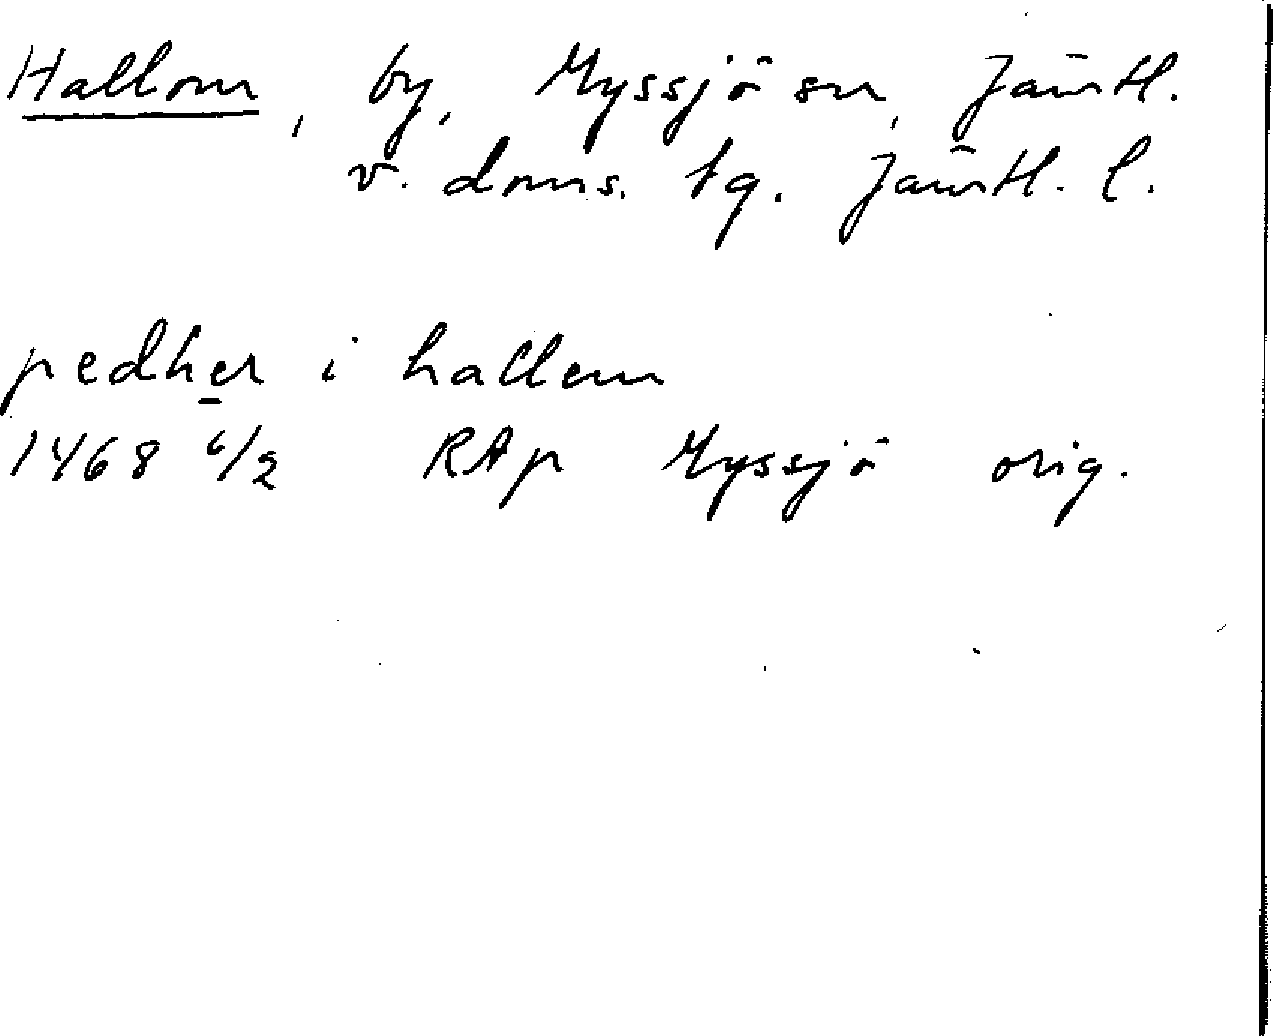 Hallom, by, Myssjö sn, Jämtl.
v. doms. tg. Jämtl. l.
pedher i hallem
1468 6/2 RAp Myssjö orig.